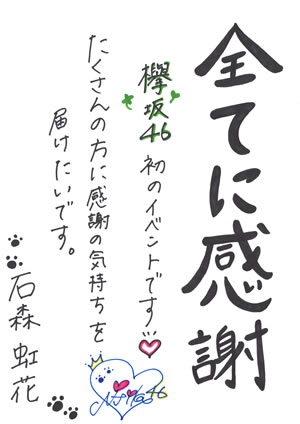 全てに感謝
欅坂46 初のイベントです…
たくさんの方に感謝の気持ちを
届けたいです。
石森 虹花